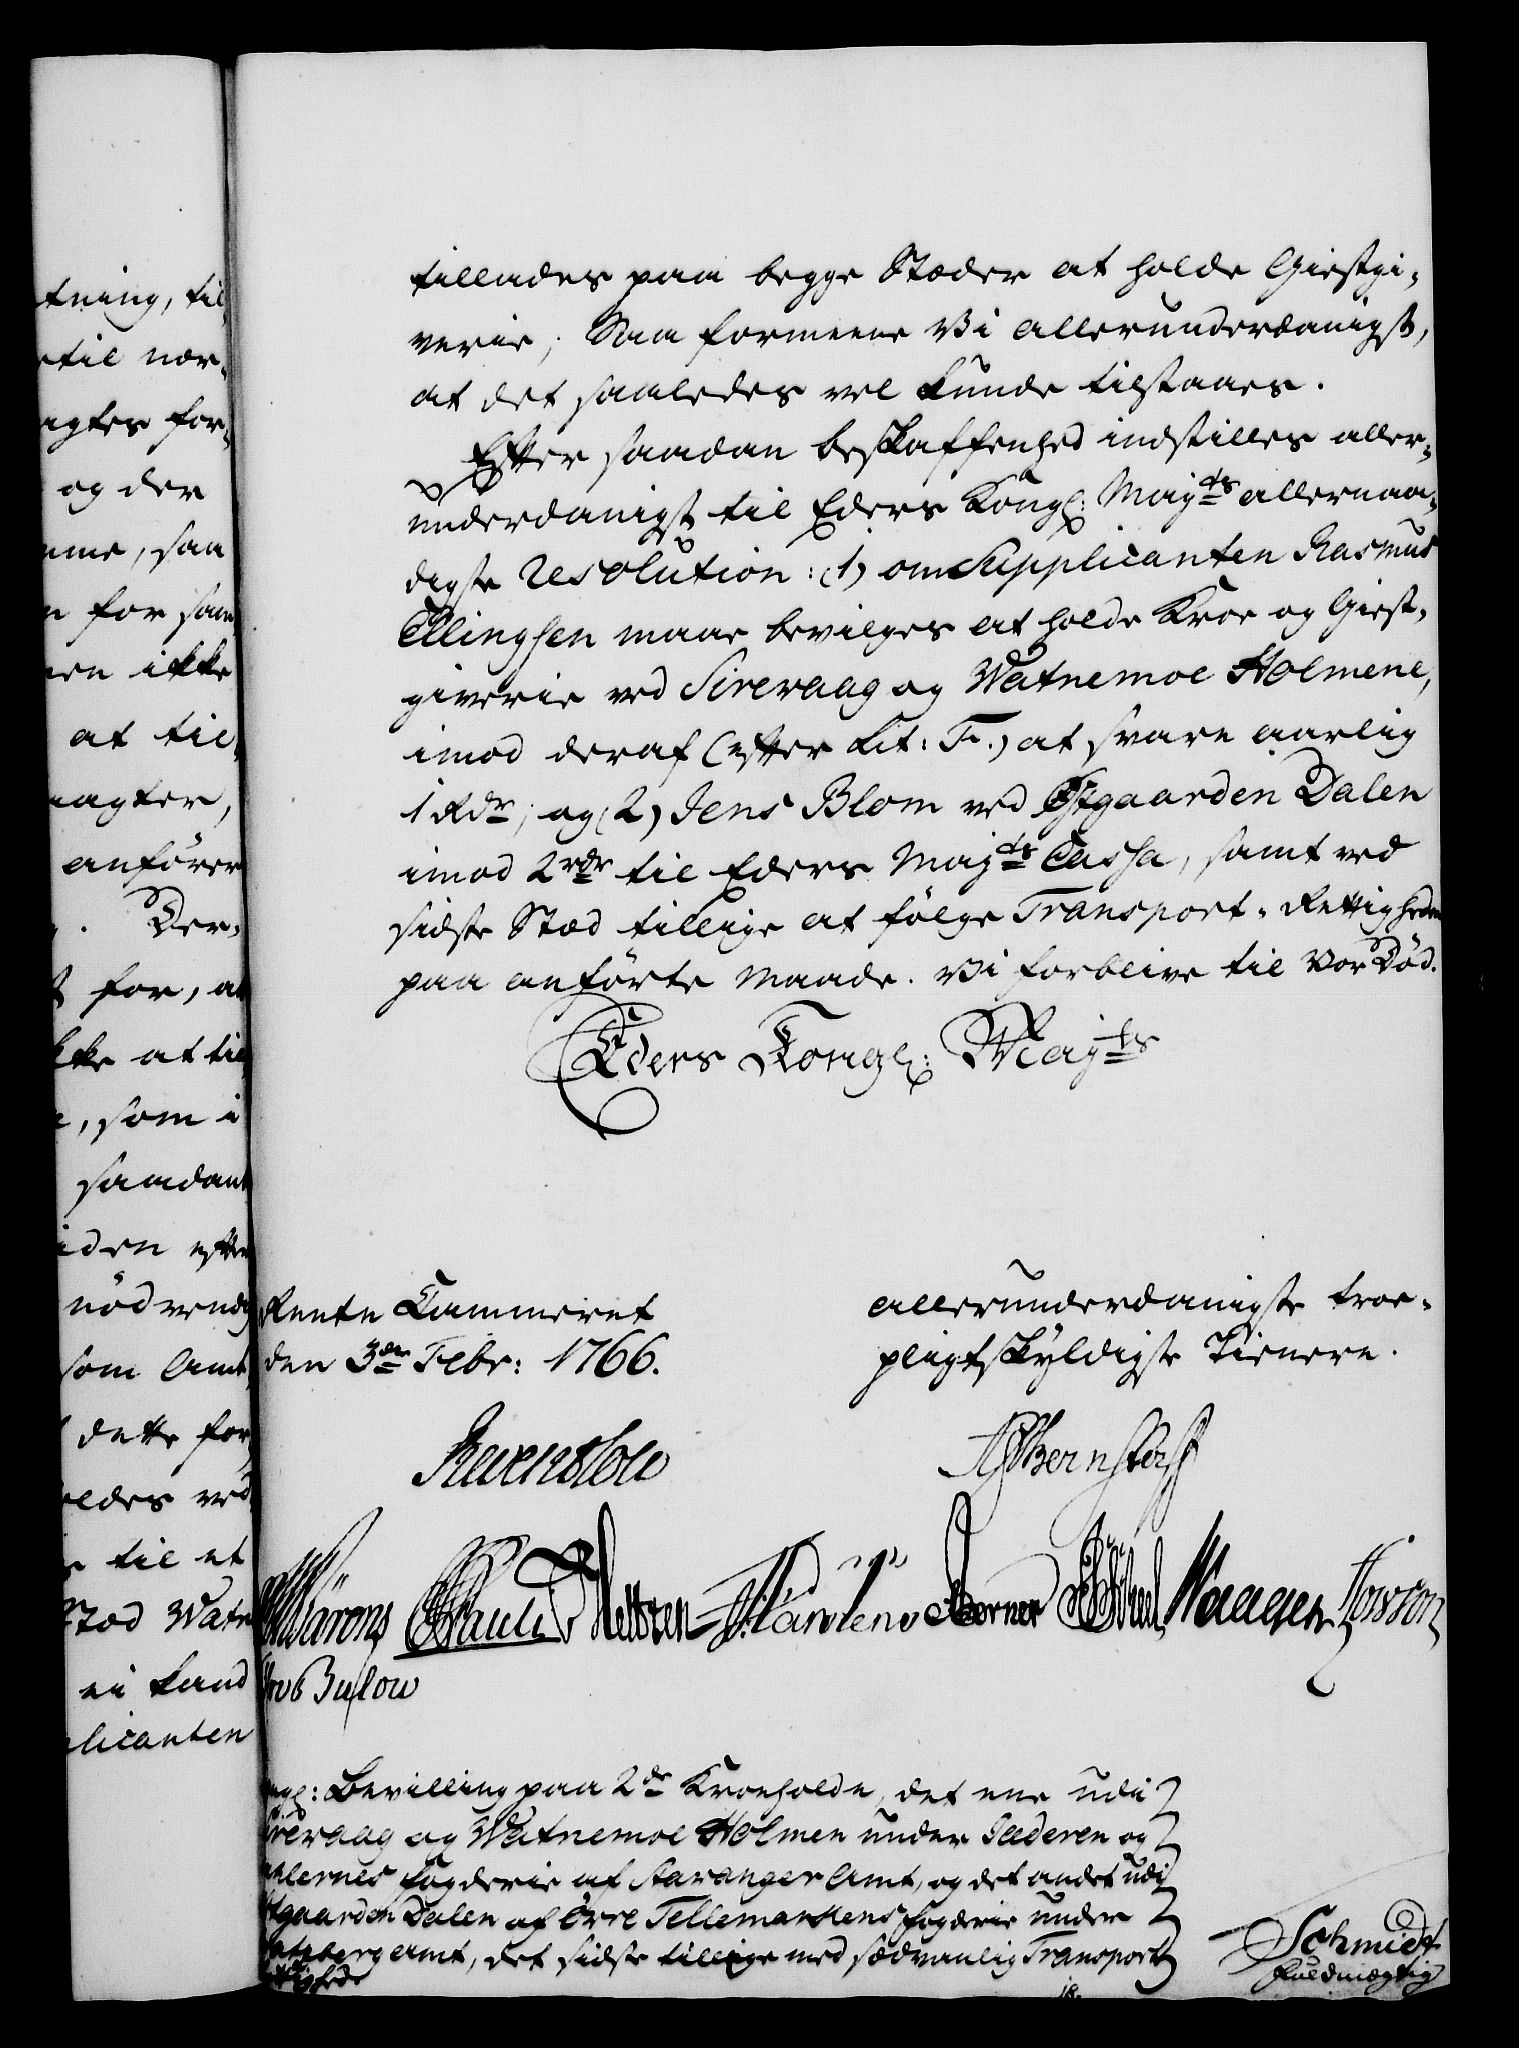 tning, til,
til nær,
agter for,
og der
me, saa
for sam
en ikke
at til,
agter,
anförer
. Der,
for, at
kke at til
, som i
saadant
iden efter
nödvendig
som Amt
dette for,
oldes ved
til et
Stod Watn
ei kand
licanten
tillades paa begge Stæder at holde Giestgi,
verie; Saa formeene Vi allerunderdanigst,
at det saaledes vel kunde tilstaaes.
Efter saadan beskaffenhed indstilles aller,
underdanigst til Eders Kongl: Mayts allernaa,
digste Resolution: (1) om Supplicanten Rasmus
Ellingsen maae bevilges at holde Kroe og Giest,
giverie ved Sireraag og Watnemoe Holmene,
imod deraf (efter Lit: F.) at svare aarlig
1 Rdr; og (2) Jens Blom ved Østgaarden Dalen
imod 2rdr til Eders Mayts Cassa, samt ved
sidste Stæd tillige at fölge Transport-Rettigheden
paa anförte Maade. Vi forblive til Vor Död.
Eders Kongl: Mayts
Rente Cammeret
den 3de Febr: 1766.
allerunderdanigste troe,
pligtskyldigste Tienere.
Reventlow
Bernstorff
Pauli Heltzen Berner Waagen
Bülow
: Bevilling paa 2de Kroeholde, det ene udi
reraag og Watnemoe Holmen under Jæderen og
alernes fogderie af Stavanger Amt, og det andet udi
tgaarden Dalen af Övre Tellemarkens fogderie under
atsberg amt, det sidste tillige med sædvanlig Transport
ttighed
Schmidt
fuldmægtig
18.